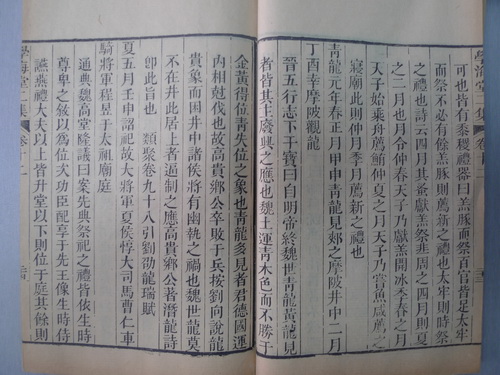 學海堂二集 卷十二
可也皆有黍稷禮器曰羔豚而祭百官皆足太牢
而祭不必有餘羔豚則薦太牢則時祭
之禮也詩云四月其蚤獻羔祭韭之四月則夏
之二月也月令仲春天子乃獻羔開冰季春之月
天子始乘舟薦鮪仲夏之月天子乃嘗魚咸薦之
寢廟此則仲月季月薦新之禮也
青龍元年春正月甲申青龍見郟之摩陂井中二月
丁酉幸摩陂觀龍
晉五行志下干寶曰自明帝終魏世青龍黃龍見
者皆其主廢興之應也魏土運青木色而不勝于
金黃得位青失位之象也青龍多見者君德國運
內相剋伐也故高貴鄉公卒敗于兵按劉向說龍
貴象而困井中諸侯將有幽執之禍也魏世龍莫
不在井此居上者逼制之應高貴鄉公著潛龍詩
卽此旨也 類聚卷九十八引劉劭龍瑞賦
夏五月壬申詔祀故大將軍夏侯惇大司馬曹仁車
騎將軍程昱于太祖廟庭
通典魏高堂隆議曰案先典祭祀之禮皆依生時
尊卑之敘以為位次功臣配享于先王像生時侍
讌燕禮大夫以上皆升堂以下則位于庭其餘則
學海堂二集 卷十二